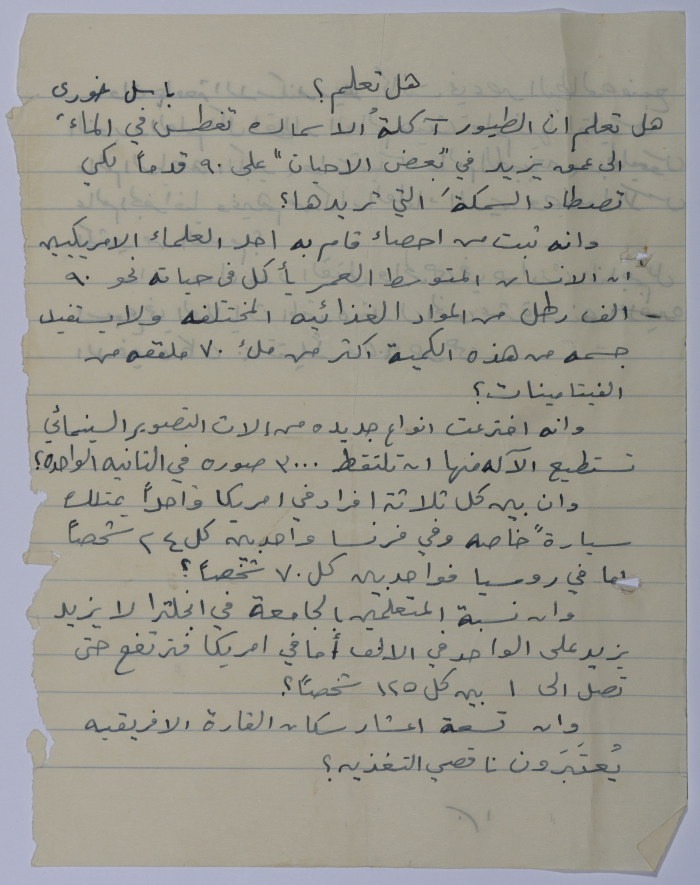 هل تعلم؟ باسل خوري
هل تعلم ان الطيور آكلةُ الاسماك تغطس في الماء
الى عمق يزيد في "بعض الاحيان" على ٩٠ قدماً لكي
تصطاد السمكةَ التي تريدها؟
وانه ثبت من احصاء قام به احد العلماء الامريكيين
ان الانسان المتوسط العمر يأكل في حياته نحو ٩٠
الف رطل من المواد الغذائيه المختلفه ولا يستفيد
جسمه من هذه الكمية اكثر من ملئ ٧٠ ملقعه من
الفيتامينات؟
وانه اخترعت انواع جديده من الات التصوير السينمائي
تستطيع الآله منها ان تلتقط ٣٠٠٠ صوره في الثانيه الواحده؟
وان بين كل ثلاثة افراد في امريكا واحداً يمتلك
سيارةً خاصه وفي فرنسا واحد بين كل ٢٤ شخصاً
اما في روسيا فواحد بين كل ٧٠ شخصاً؟
وان نسبة المتعلمين بالجامعة في انجلترا لا يزيد
يزيد على الواحد في الالف أما في امريكا فترتفع حتى
تصل الى ١ بين كل ١٢٥ شخصاً؟
وان تسعة اعشار سكان القارة الافريقيه
يُعتَبَرون ناقصي التغذيه؟